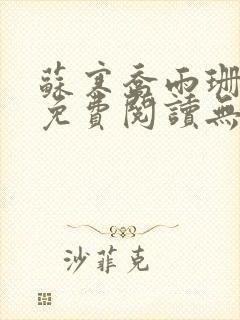 蘇寒喬雨珊
免費閱讀無
沙菲克